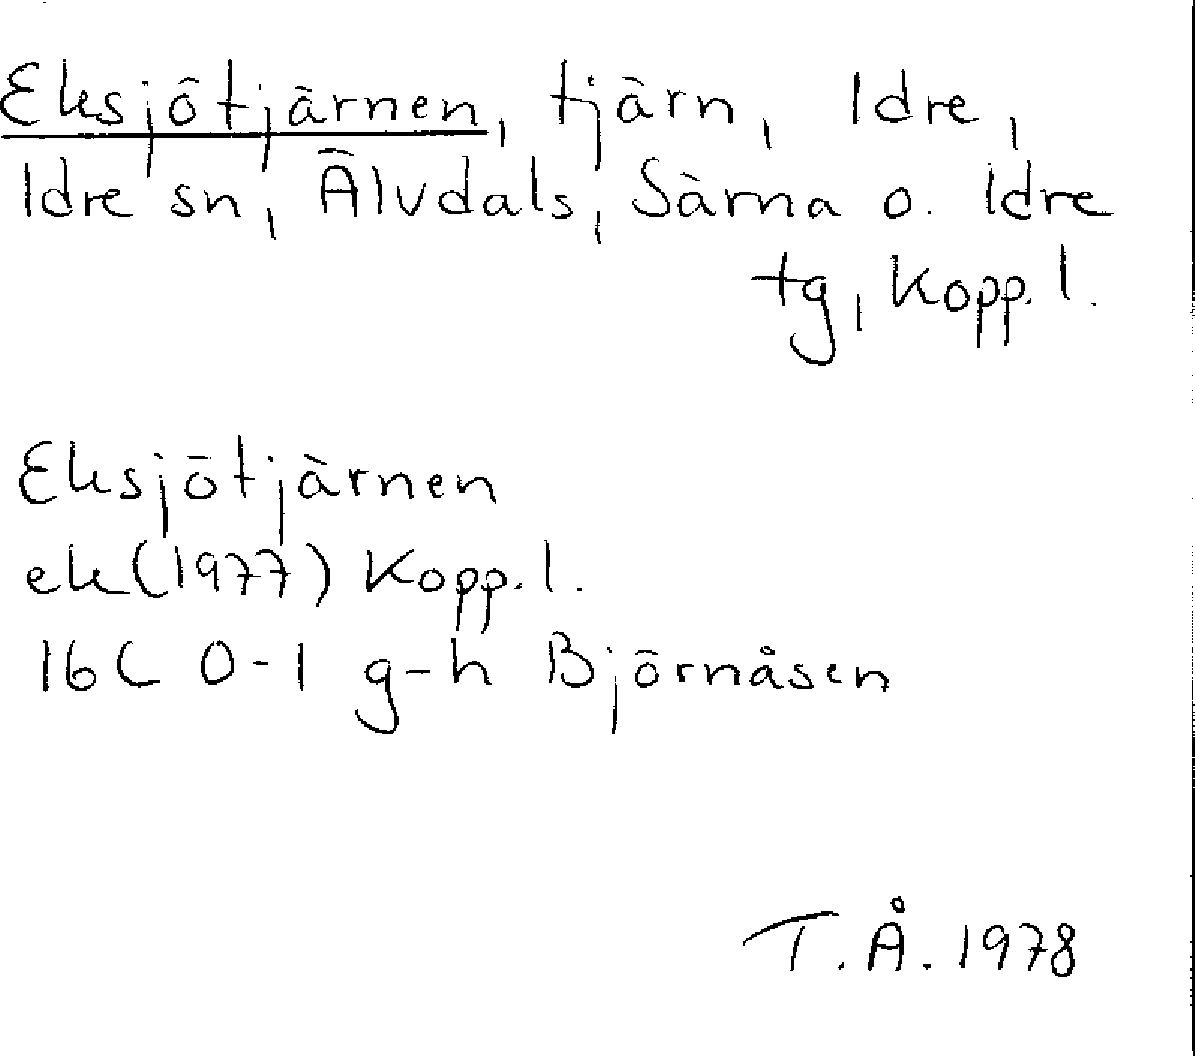 Eksjötjärnen, tjärn, Idre,
Idre sn, Älvdals, Särna o. Idre
tg, Kopp. l.
Eksjötjärnen
ek (1977) Kopp. l.
16C 0-1 g-h Björnåsen
T.Å. 1978